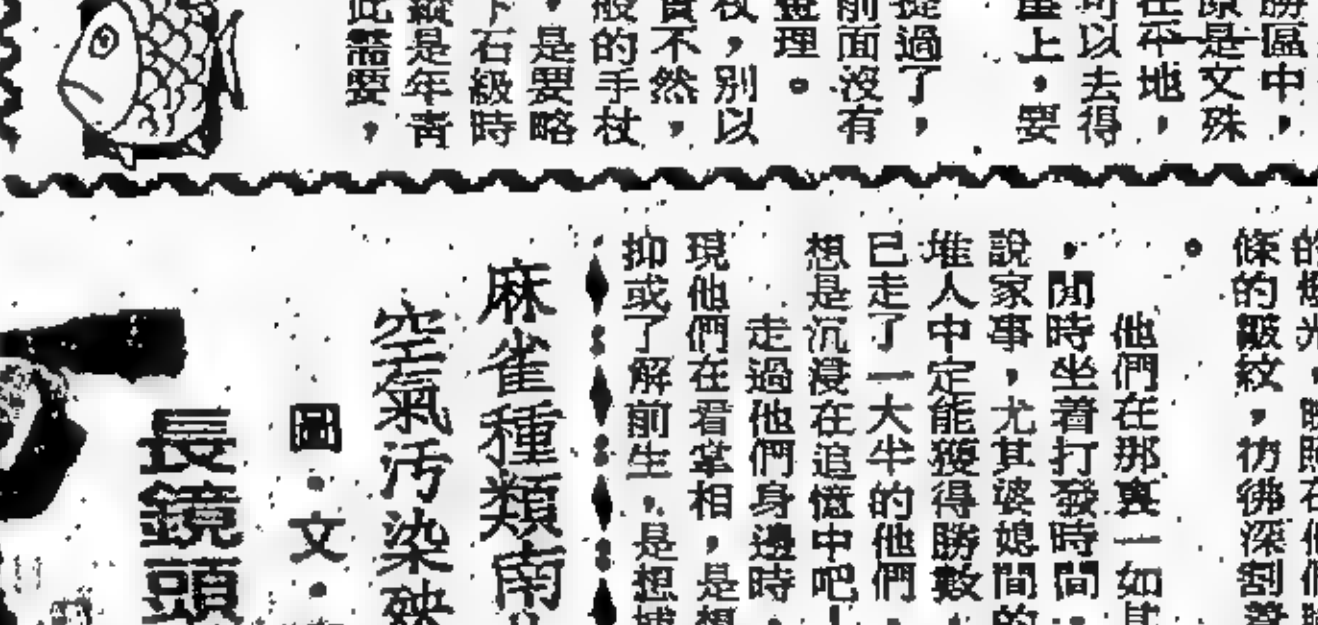 勝區中，
原是文殊
在平地，
可以去得
上，要
提過了，
前面沒有
理。
杖，別以
實不然，
般的手杖
，是要略
下石級時
縱是年靑
此需要，
條的皺紋，彷彿深割著
他們在那裏一如其
，閒時坐着打發時間，
說家事，尤其婆媳間的
堆人中定能獲得勝數，
已走了一大半的他們
想是沉浸在追憶中吧！
走過他們身邊時，
現他們在看掌相，是想
抑或了解前生，是想
麻雀種類南
空氣汚染殃
圖・文・
長鏡頭